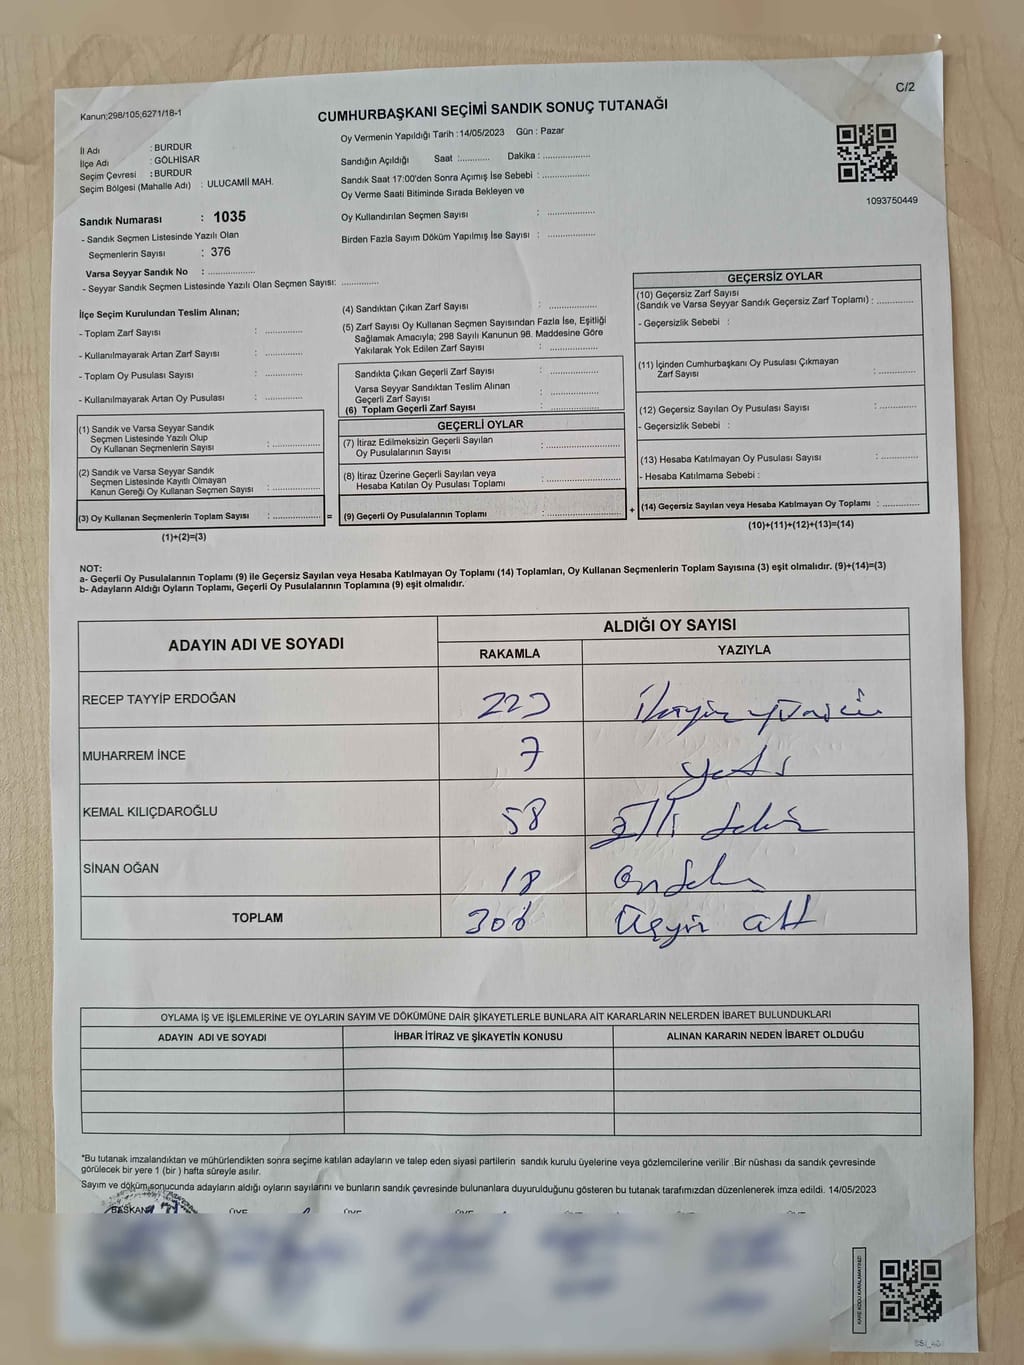 C/2
Kanun;298/105;6271/18-1
CUMHURBAŞKANI SEÇİMİ SANDIK SONUÇ TUTANAĞI
Oy Vermenin Yapıldığı Tarih :14/05/2023 Gün : Pazar
İl Adı : BURDUR
İlçe Adı : GÖLHİSAR
Seçim Çevresi : BURDUR
Seçim Bölgesi (Mahalle Adı) : ULUCAMİİ MAH.
Sandık Numarası : 1035
- Sandık Seçmen Listesinde Yazılı Olan
Seçmenlerin Sayısı : 376
Varsa Seyyar Sandık No : ..............
- Seyyar Sandık Seçmen Listesinde Yazılı Olan Seçmen Sayısı: ..............
Sandığın Açıldığı Saat :........... Dakika : ..............
Sandık Saat 17:00'den Sonra Açımış İse Sebebi : ..............
Oy Verme Saati Bitiminde Sırada Bekleyen ve
Oy Kullandırılan Seçmen Sayısı : ..............
Birden Fazla Sayım Döküm Yapılmış İse Sayısı : ..............
1093750449
İlçe Seçim Kurulundan Teslim Alınan;
- Toplam Zarf Sayısı : ..............
- Kullanılmayarak Artan Zarf Sayısı : ..............
- Toplam Oy Pusulası Sayısı : ..............
- Kullanılmayarak Artan Oy Pusulası : ..............
(1) Sandık ve Varsa Seyyar Sandık
Seçmen Listesinde Yazılı Olup
Oy Kullanan Seçmenlerin Sayısı : ..............
(2) Sandık ve Varsa Seyyar Sandık
Seçmen Listesinde Kayıtlı Olmayan
Kanun Gereği Oy Kullanan Seçmen Sayısı : ..............
(3) Oy Kullanan Seçmenlerin Toplam Sayısı : .............. =
(1)+(2)=(3)
(4) Sandıktan Çıkan Zarf Sayısı : ..............
(5) Zarf Sayısı Oy Kullanan Seçmen Sayısından Fazla İse, Eşitliği
Sağlamak Amacıyla; 298 Sayılı Kanunun 98. Maddesine Göre
Yakılarak Yok Edilen Zarf Sayısı : ..............
Sandıkta Çıkan Geçerli Zarf Sayısı : ..............
Varsa Seyyar Sandıktan Teslim Alınan
Geçerli Zarf Sayısı : ..............
(6) Toplam Geçerli Zarf Sayısı : ..............
GEÇERLİ OYLAR
(7) İtiraz Edilmeksizin Geçerli Sayılan
Oy Pusulasının Sayısı : ..............
(8) İtiraz Üzerine Geçerli Sayılan veya
Hesaba Katılan Oy Pusulası Toplamı : ..............
(9) Geçerli Oy Pusulalarının Toplamı : .............. +
GEÇERSİZ OYLAR
(10) Geçersiz Zarf Sayısı
(Sandık ve Varsa Seyyar Sandık Geçersiz Zarf Toplamı) : ..............
- Geçersizlik Sebebi :
(11) İçinden Cumhurbaşkanı Oy Pusulası Çıkmayan
Zarf Sayısı : ..............
(12) Geçersiz Sayılan Oy Pusulası Sayısı : ..............
- Geçersizlik Sebebi :
(13) Hesaba Katılmayan Oy Pusulası Sayısı : ..............
- Hesaba Katılmama Sebebi :
(14) Geçersiz Sayılan veya Hesaba Katılmayan Oy Toplamı : ..............
(10)+(11)+(12)+(13)=(14)
NOT:
a- Geçerli Oy Pusulalarının Toplamı (9) ile Geçersiz Sayılan veya Hesaba Katılmayan Oy Toplamı (14) Toplamları, Oy Kullanan Seçmenlerin Toplam Sayısına (3) eşit olmalıdır. (9)+(14)=(3)
b- Adayların Aldığı Oyların Toplamı, Geçerli Oy Pusulalarının Toplamına (9) eşit olmalıdır.
ADAYIN ADI VE SOYADI ALDIĞI OY SAYISI
RAKAMLA YAZIYLA
RECEP TAYYİP ERDOĞAN 223
MUHARREM İNCE 7 yedi
KEMAL KILIÇDAROĞLU 58 elli sekiz
SİNAN OĞAN 18 on sekiz
TOPLAM 306 üçyüz altı
OYLAMA İŞ VE İŞLEMLERİNE VE OYLARIN SAYIM VE DÖKÜMÜNE DAİR ŞİKAYETLERLE BUNLARA AİT KARARLARIN NELERDEN İBARET BULUNDUKLARI
ADAYIN ADI VE SOYADI İHBAR İTİRAZ VE ŞİKAYETİN KONUSU ALINAN KARARIN NEDEN İBARET OLDUĞU
*Bu tutanak imzalandıktan ve mühürlendikten sonra seçime katılan adayların ve talep eden siyasi partilerin sandık kurulu üyelerine veya gözlemcilerine verilir .Bir nüshası da sandık çevresinde
görülecek bir yere 1 (bir ) hafta süreyle asılır.
Sayım ve döküm sonucunda adayların aldığı oyların sayılarını ve bunların sandık çevresinde bulunanlara duyurulduğunu gösteren bu tutanak tarafımızdan düzenlenerek imza edildi. 14/05/2023
BAŞKAN ÜYE ÜYE ÜYE ÜYE ÜYE
KARE KODU KARALAMAYINIZ!